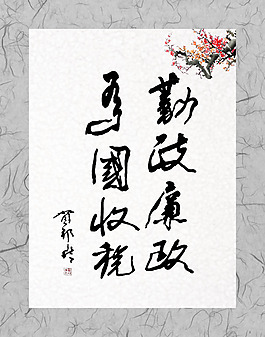 勤政廉政
为國收税